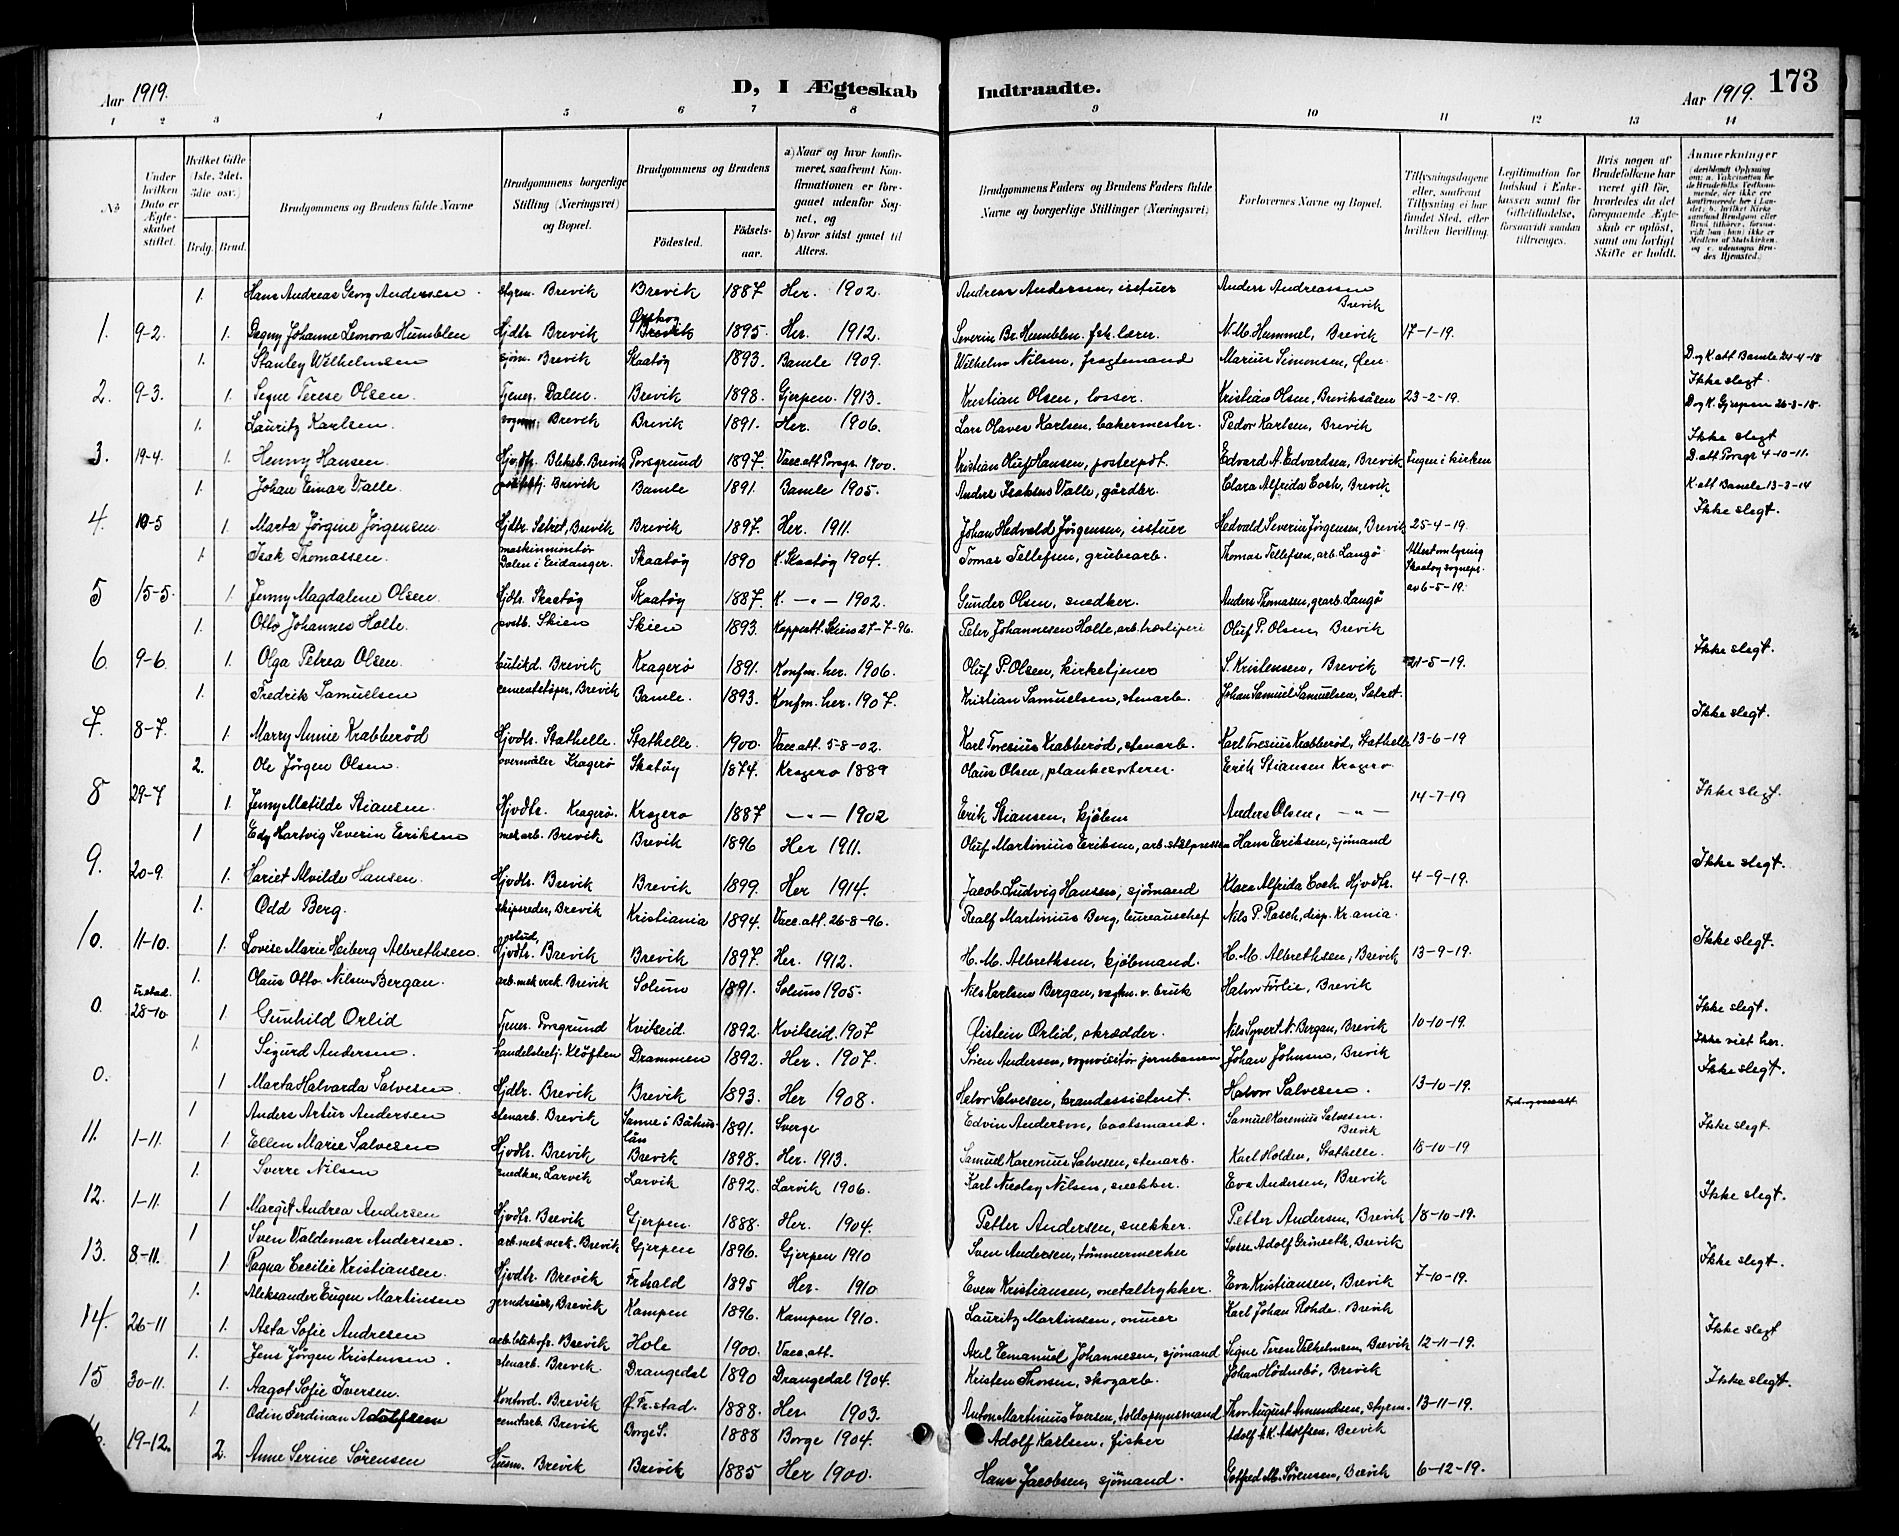 Aar 1919.
D, I Ægteskab Indtraadte.
Aar 1919.
173
1 2 3 4 5 6 7 8 9 10 11 12 13 14
No
Under hvilken Dato er Ægteskabet stiftet.
Hvilket Gifte 1ste, 2det, 3die osv.)
Brdg. Brud.
Brudgommens og Brudens fulde Navne
Brudgommens borgerlige Stilling (Næringsvei) og Bopæl.
Brudgommens og Brudens
Fødested.
Fødselsaar.
a) Naar og hvor konfirmeret, saafremt Konfirmationen er foregaaet udenfor Sognet, og
b) hvor sidst gaaet til Alters.
Brudgommens Faders og Brudens Faders fulde Navne og borgerlige Stillinger (Næringsvei)
Forlovernes Navne og Bopæl.
Tillysningsdagene eller, saafremt Tillysning ei har fundet Sted, efter hvilken Bevilling.
Legitimation for Indskud i Enkekassen samt for Giftetilladelse, forsaavidt saadan tiltrænges.
Hvis nogen af Brudefolkene har været gift før, hvorledes da det foregaaende Ægteskab er opløst, samt om lovligt Skifte er holdt.
Anmerkninger
1. Hans Andreas Georg Andersen styrm. Brevik Brevik 1887 Her. 1902. Andreas Andersen, isstuer Anders Andreassen Brevik
1. 9-2. 1. Dagny Johanne Leonora Humblen Hjdtr. Brevik Brevik 1895. Her. 1912. Severin Br. Humblen, fhv. lærer. N. M. Hummel, Brevik 17-1-19.
1. Stanley Wilhelmsen sjøm. Brevik Skaatøy 1893. Bamle 1909. Wilhelm Nilsen, fragtemand Marius Simonsen, Øen D og K att Bamle 24-4-18
2. 9-3. 1. Signe Terese Olsen. Tjener Dalen. Brevik 1898. Gjerpen. 1913. Kristian Olsen, losser. Kristian Olsen, Breviksåsen 23-2-19. Ikke slegt. D og K. Gjerpen 26-3-18.
1. Lauritz Karlsen. Brevik Brevik 1891. Her. 1906. Lars Olaves Karlsen, bakermester. Peder Karlsen, Brevik
3. 19-4. 1. Henny Hansen. Brevik Porsgrund 1897. Vacc. att Porsgr. 1900. Kristian Oluf Hansen, postexpdt. Edvard A. Edvardsen, Brevik Ingen i kirken Ikke slegt D. att Porsgr 4-10-11.
1. Johan Einar Valle. Brevik Bamle 1891. Bamle 1905. Anders Isaksen Valle, gårdbr. Clara Alfrida Eoch, Brevik K. att Bamle 13-3-14
4. 10-5 1. Marta Jørgine Jørgensen Hjdtr. Setret, Brevik Brevik 1897. Her. 1911. Johan Hedvald Jørgensen, isstuer Hedvald Severin Jørgensen, Brevik 25-4-19. Ikke slegt.
1. Isak Thomassen. maskinmontør Dalen i Eidanger. Skaatøy 1890 K. Skaatøy 1904. Tomas Tellefsen, grubearb. Thomas Tellefsen, arb. Langø Attest om lysning Skaatøy sognepr. av 6-5-19.
5 15-5. 1 Jenny Magdalene Olsen Hjdtr. Skaatøy Skaatøy 1887. K. -"- 1902. Gunder Olsen, snedker. Anders Thomasen, grarb. Langø
1. Otto Johannes Holte. Skien Skien 1893. Koppeatt. Skien 27-7-96. Peter Johannesen Holte, arb. træsliperi Oluf P. Olsen, Brevik
6. 9-6. 1. Olga Petrea Olsen. butikd. Brevik Kragerø 1891. Konfm. her. 1906. Oluf P. Olsen, kirketjener S. Kristensen, Brevik 21-5-19. Ikke slegt.
1. Fredrik Samuelsen cementstøper, Brevik Bamle. 1893. Konfm. her. 1907. Kristian Samuelsen, stenarb. Johan Samuel Samuelsen, Setret.
7. 8-7. 1. Marry Annie Krabberød Hjvdtr. Stathelle. Stathelle. 1900. Vacc. att. 5-8-02. Karl Toresius Krabberød, stenarb. Karl Toresius Krabberød, Stathelle 13-6-19 Ikke slegt.
2. Ole Jørgen Olsen. overmåler Kragerø Skatøy 1874. Kragerø 1889 Olaus Olsen, plankesorterer. Erik Stiansen Kragerø
8 29-7 1. Jenny Matilde Stiansen. Hjvdtr. Kragerø. Kragerø 1887 -"- 1902 Erik Stiansen, Anders Olsen, -"- 14-7-19 Ikke slegt.
1 Edy Hartvig Severin Eriksen mek arb. Brevik Brevik 1896 Her 1911. Oluf Martinius Eriksen, Hans Eriksen, sjømand
9. 20-9. 1. Hariet Alvilde Hansen. Hjvdtr. Brevik Brevik 1899. Her 1914. Jacob Ludvig Hansen, sjømand Klara Alfrida Eoch. Hjvdtr. 4-9-19. Ikke slegt.
1. Odd Berg. skipsreder, Brevik Kristiania 1894. Vacc. att. 26-8-96. Realf Martinius Berg, bureauchef Nils P. Rasch, disp. Kr.ania.
10. 11-10. 1. Lovise Marie Heiberg Albrethsen. Hjvdtr. Brevik Brevik 1897. Her. 1912. H. M. Albrethsen, kjøbmand. H. M. Albrethsen, Brevik 13-9-19. Ikke slegt.
1. Olaus Otto Nilsen Bergan. arb. mek verk. Brevik Solum 1891. Solum 1905. Nils Karlsen Bergan, Halvor Førlie, Brevik
0. Fr.stad. 28-10. 1. Gunhild Orlid Tjener Porsgrund Kviteseid. 1892. Kviteseid. 1907 Øistein Orlid, skrædder. Nils Syvert N. Bergan, Brevik 10-10-19. Ikke slegt. Ikke viet her.
1. Sigurd Andersen. handelsbetj. Kløften Drammen 1892. Her. 1907. Søren Andersen, vognvisitør jernbanen Johan Johnsen, Brevik
0. 1 Marta Halvarda Salvesen. Hjdtr. Brevik Brevik 1893. Her 1908. Halvor Salvesen, brandassistent. Halvor Salvesen. 13-10-19. Ikke slegt.
1 Anders Artur Andersen stenarb. Brevik Sanne i Båhuslän 1891. Sverge Edvin Anderson, baatsmand. Samuel Karenius Salvesen. Brevik
11. 1-11. 1. Ellen Marie Salvesen Hjvdtr. Brevik Brevik 1898. Her. 1913. Samuel Karenius Salvesen, stenarb. Karl Holden, Stathelle. 18-10-19 Ikke slegt
1. Sverre Nilsen snedker, Larvik Larvik 1892. Larvik 1906. Karl Nicolay Nilsen, snekker. Eva Andersen, Brevik
12. 1-11. 1 Margit Andrea Andersen Hjvdtr. Brevik Gjerpen. 1888. Her. 1904. Petter Andersen, snekker. Petter Andersen, Brevik 18-10-19. Ikke slegt.
1 Sven Valdemar Andersen. arb. mek verk. Brevik Gjerpen 1896. Gjerpen 1910 Sven Andersen, tømmermerker Adolf Grønseth, Brevik
13. 8-11. 1 Ragna Cecilie Kristiansen. Hjvdtr. Brevik Fr.hald 1895 Her. 1910 Even Kristiansen, metaltrykker. Eva Kristiansen, Brevik 7-10-19. Ikke slegt.
1. Aleksander Eugen Martinsen jerndreier, Brevik Kampen 1896. Kampen 1910. Lauritz Martinsen, murer Karl Johan Rohde. Brevik
14. 26-11 1. Asta Sofie Andresen Brevik Hole 1900. Vacc. att. Axel Emanuel Johannesen, sjømand Signe Terese Vilhelmsen, Brevik 12-11-19. Ikke slegt
1. Jens Jørgen Kristensen. stenarb. Brevik Drangedal 1890 Drangedal 1904. Kristen Thorsen, skogarb. Johan Hødnebø, Brevik
15 30-11. 1. Aagot Sofie Iversen. Kontord. Brevik Ø. Fr.stad. 1888. Her 1903. Anton Martinius Iversen, toldopsynsmand Thor August Amundsen, styrm. 13-11-19. Ikke slegt.
1. Odin Ferdinan Adolfsen cemtarb. Brevik Borge S. 1888 Borge 1904. Adolf Karlsen, fisker Adolf A. K. Adolfsen, Brevik
19-12. 2. Anne Serine Sørensen Husm. Brevik Brevik 1885 Her 1900. Hans Jacobsen, sjømand. Gotfred M. Sørensen, Brevik 6-12-19.